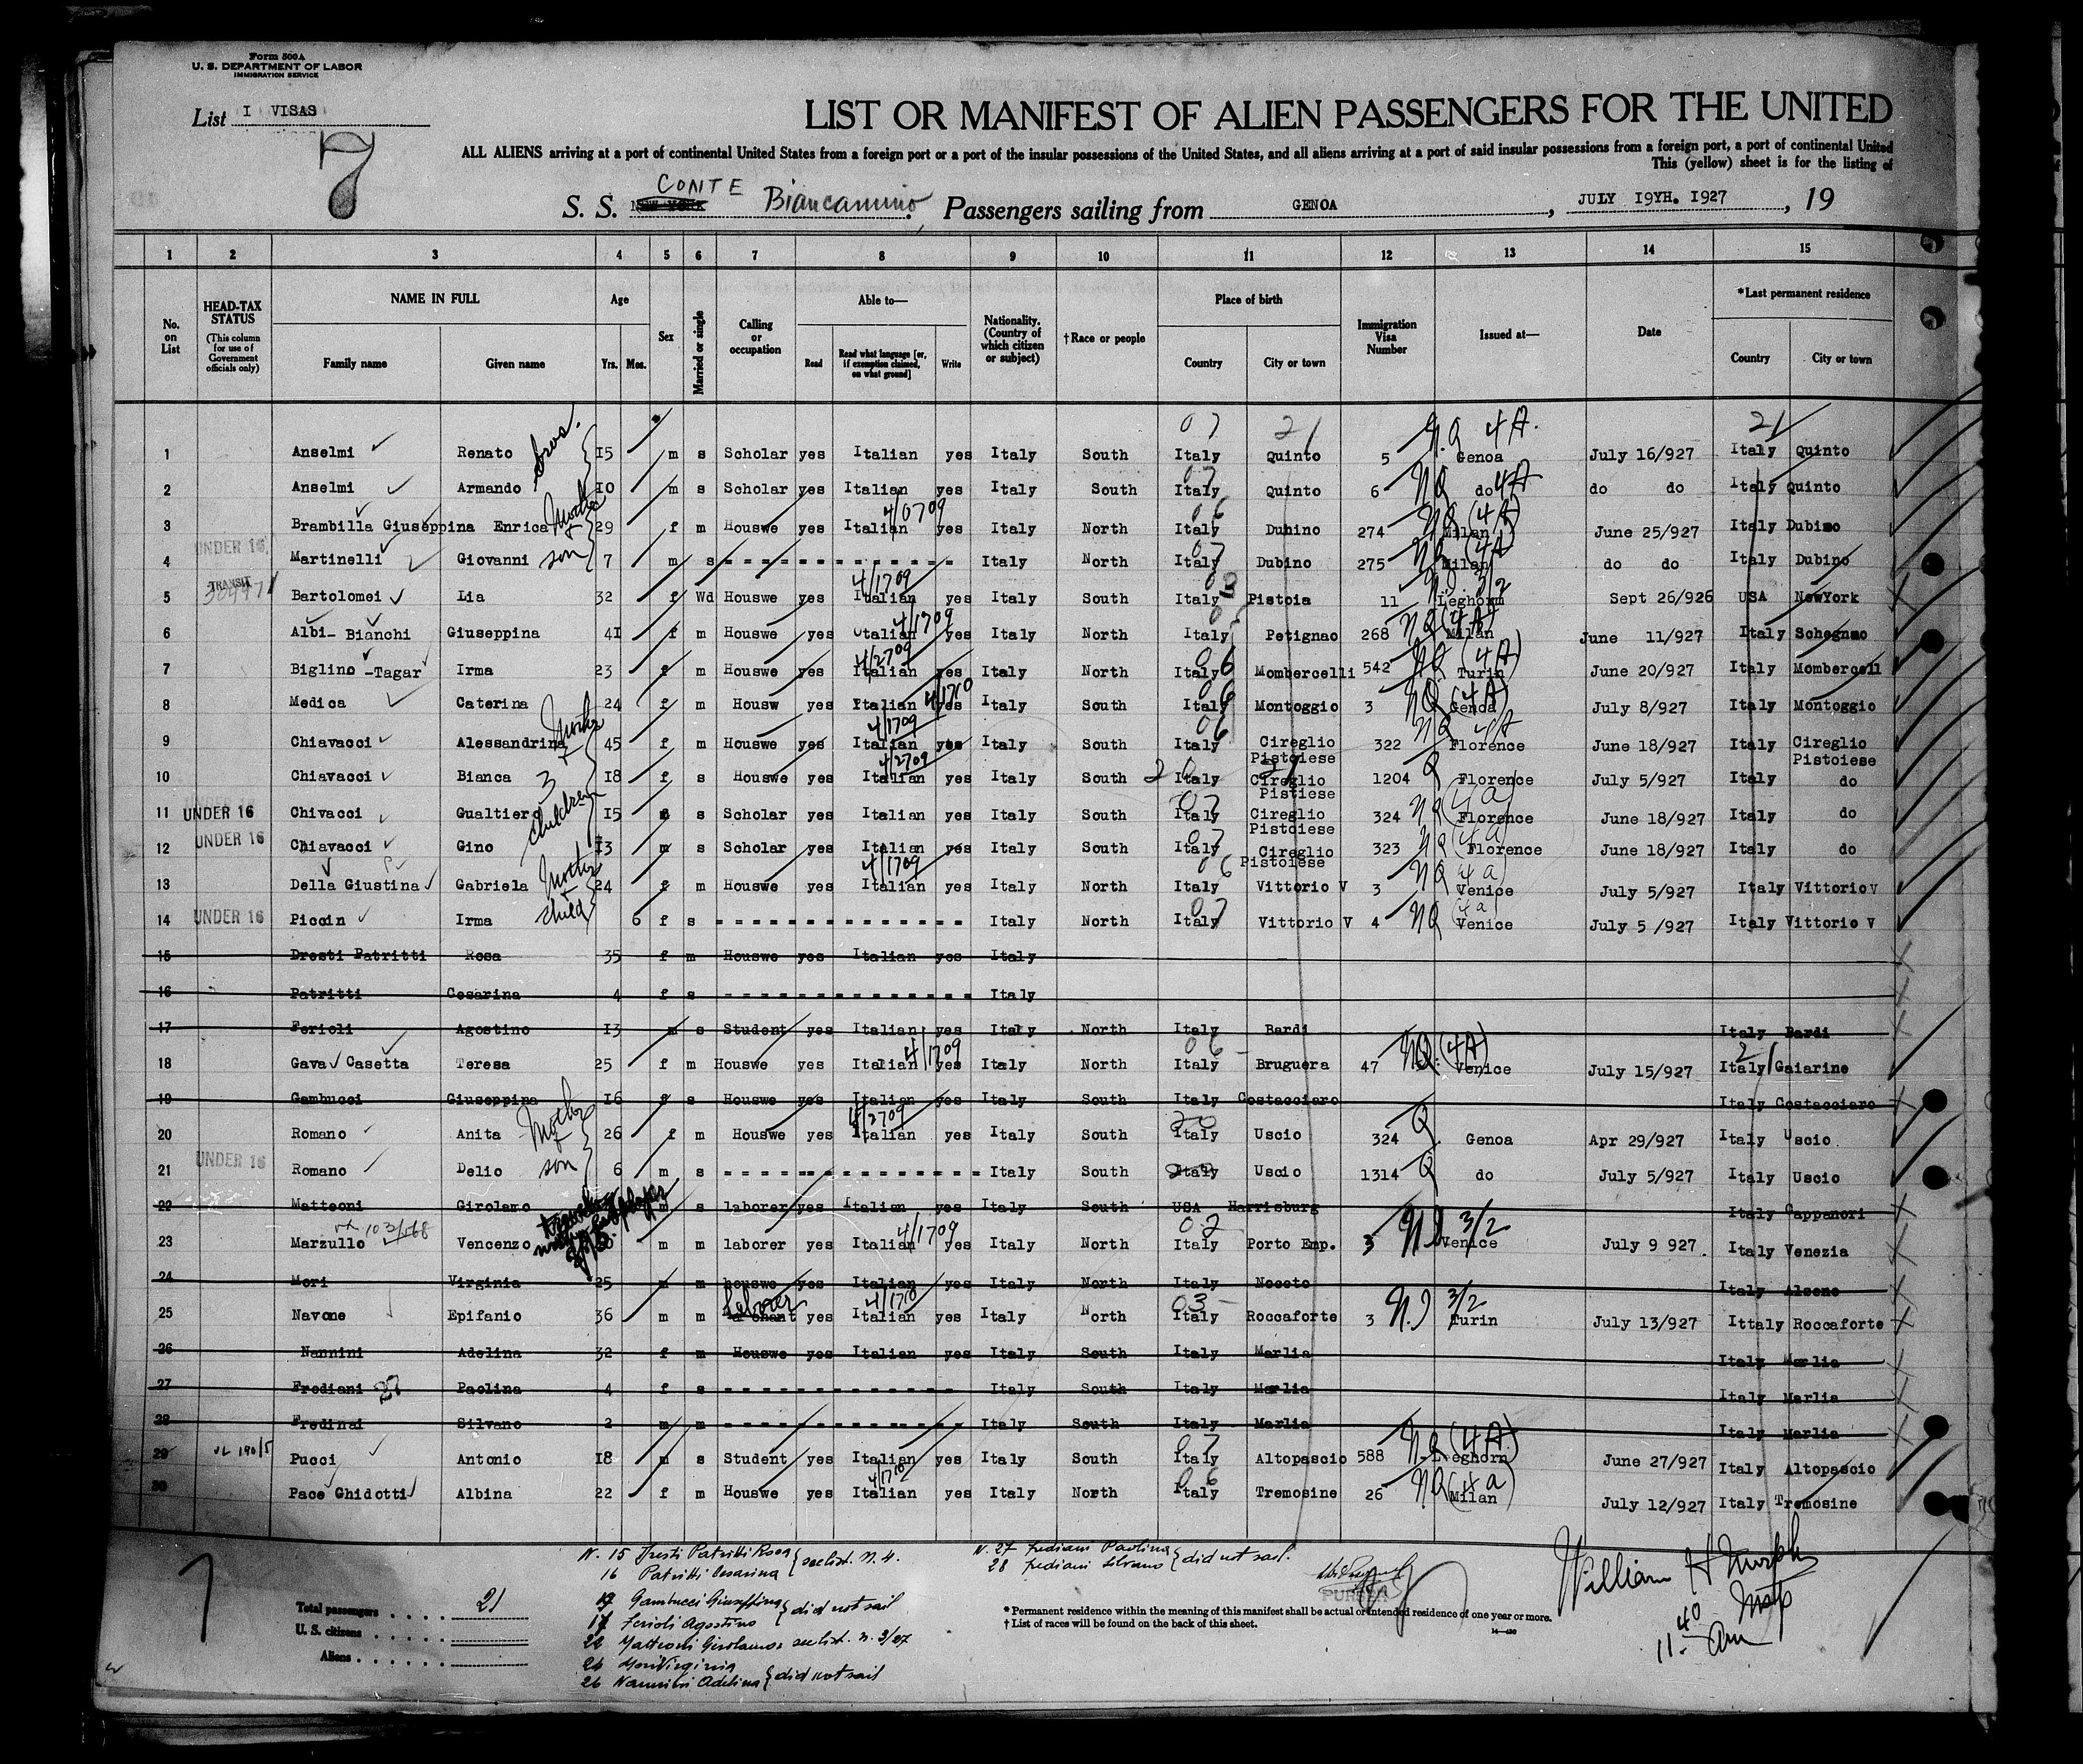 Form 500A
U. S. DEPARTMENT OF LABOR
IMMIGRATION SERVICE
List I VISAS
7
LIST OR MANIFEST OF ALIEN PASSENGERS FOR THE UNITED
ALL ALIENS arriving at a port of continental United States from a foreign port or a port of the insular possessions of the United States, and all aliens arriving at a port of said insular possessions from a foreign port, a port of continental United
This (yellow) sheet is for the listing of
S. S. NEW YORK CONTE Biancamino, Passengers sailing from GENOA, JULY I9YH. I927, 19
1 2 3 4 5 6 7 8 9 10 11 12 13 14 15
No. on List HEAD-TAX STATUS (This column for use of Government officials only) NAME IN FULL Family name Given name Age Yrs. Mos. Sex Married or single Calling or occupation Able to— Read Read what language [or, if exemption claimed, on what ground] Write Nationality. (Country of which citizen or subject) †Race or people Place of birth Country City or town Immigration Visa Number Issued at— Date *Last permanent residence Country City or town
07 21 NQ 4A. 21
1 Anselmi Renato bros. I5 m s Scholar yes Italian yes Italy South Italy Quinto 5 Genoa July 16/927 Italy Quinto
2 Anselmi Armando I0 m s Scholar yes Italian yes Italy South 07 Italy Quinto 6 NQ do 4A do do Italy Quinto
3 Brambilla Giuseppina Enrica Mother + 29 f m Houswe yes Italian 4/0709 yes Italy North 06 Italy Dubino 274 NQ (4A) Milan June 25/927 Italy Dubino
4 UNDER 16 Martinelli Giovanni son 7 m s Italy North 07 Italy Dubino 275 NQ (4A) Milan do do Italy Dubino
5 TRANSIT Bartolomei Lia 32 f Wd Houswe yes Italian 4/1709 yes Italy South Italy Pistoia 11 3/2 Leghorn Sept 26/926 USA NewYork
6 Albi- Bianchi Giuseppina 4I f m Houswe yes Italian 4/1709 yes Italy North Italy Petignao 268 NQ (4A) Milan June 11/927 Italy Schegnao
7 Biglino -Tagar Irma 23 f m Houswe yes Italian 4/2709 yes Italy North 06 Italy Mombercelli 542 NQ (4A) Turin June 20/927 Italy Mombercell
8 Medica Caterina 24 f m Housw yes Italian 4/1710 yes Italy South 06 Italy Montoggio 3 NQ (4A) Genoa July 8/927 Italy Montoggio
9 Chiavacci Alessandrina Mother + 45 f m Houswe yes Italian 4/1709 yes Italy South 06 Italy Cireglio Pistoiese 322 NQ 4A Florence June 18/927 Italy Cireglio Pistoiese
10 Chiavacci Bianca 3 I8 f s Houswe yes Italian 4/2709 yes Italy South Italy Cireglio Pistiese 1204 Q Florence July 5/927 Italy do
11 UNDER 16 Chivacci Gualtiero children I5 m s Scholar yes Italian yes Italy South 07 Italy Cireglio Pistoiese 324 NQ (4a) Florence June 18/927 Italy do
12 UNDER 16 Chiavacci Gino I3 m s Scholar yes Italian yes Italy South 07 Italy Cireglio Pistoiese 323 NQ (4a) Florence June 18/927 Italy do
13 Della Giustina Gabriela Mother + 24 f m Houswe yes Italian 4/1709 yes Italy North 06 Italy Vittorio V 3 NQ 4a) Venice July 5/927 Italy Vittorio V
14 UNDER 16 Piccin Irma child 6 f s Italy North 07 Italy Vittorio V 4 NQ (4a) Venice July 5 /927 Italy Vittorio V
15 Dresti Patritti Rosa 35 f m Houswe yes Italian yes Italy
16 Patritti Cesarina 4 f s Italy
17 Ferioli Agostino I3 m s Student yes Italian yes Italy North Italy Bardi Italy Bardi
18 Gava Casetta Teresa 25 f m Houswe yes Italian 4/1709 yes Italy North 06 Italy Bruguera 47 NQ (4A) Venice July 15/927 Italy Gaiarine
19 Gambucci Giuseppina I6 f s Houswe yes Italian yes Italy South Italy Costacciaro Italy Costacciaro
20 Romano Anita Mother + 26 f m Houswe yes Italian 4/2709 yes Italy South 20 Italy Uscio 324 Q Genoa Apr 29/927 Italy Uscio
21 UNDER 16 Romano Delio son 6 m s Italy South Italy Uscio 1314 Q do July 5/927 Italy Uscio
22 Matteoni Girolamo m s laborer yes Italian yes Italy South USA Harrisburg Italy Cappanori
23 Marzullo Vencenzo m m laborer yes Italian 4/1709 yes Italy North 02 Italy Porto Emp. 3 3/2 Venice July 9 927 Italy Venezia
24 Mori Virginia 25 m m houswe yes Italian yes Italy North Italy Noceto Italy Alseno
25 Navone Epifanio 36 m m Laborer yes Italian 4/1710 yes Italy North 03 Italy Roccaforte 3 3/2 Turin July 13/927 Ittaly Roccaforte
26 Nannini Adelina 32 f m Houswe yes Italian yes Italy South Italy Marlia Italy Marlia
27 Frediani 27 Paolina 4 f s Italy South Italy Marlia Italy Marlia
28 Fredinai Silvano 2 m m Italy South Italy Marlia Italy Marlia
29 Pucci Antonio I8 m s Student yes Italian yes Italy South 07 Italy Altopascio 588 NQ (4A) Leghorn June 27/927 Italy Altopascio
30 Pace Ghidotti Albina 22 f m Houswe yes Italian 4/1710 yes Italy North 06 Italy Tremosine 26 NQ (4a) Milan July 12/927 Italy Tremosine
N. 15 Dresti Patritti Rosa } see list. N. 4.
16 Patritti Cesarina
19 Gambucci Giuseppina } did not sail
17 Ferioli Agostino
22 Matteoni Girolamo: see list. n. 3/27
24 Mori Virginia
26 Nannini Adelina } did not sail
N. 27 Frediani Paolina } did not sail.
28 Frediani Silvano
Total passengers 21
U. S. citizens
Aliens
PURSER
* Permanent residence within the meaning of this manifest shall be actual or intended residence of one year or more.
† List of races will be found on the back of this sheet.
14—430
William H Murphy
Insp
11 40 am